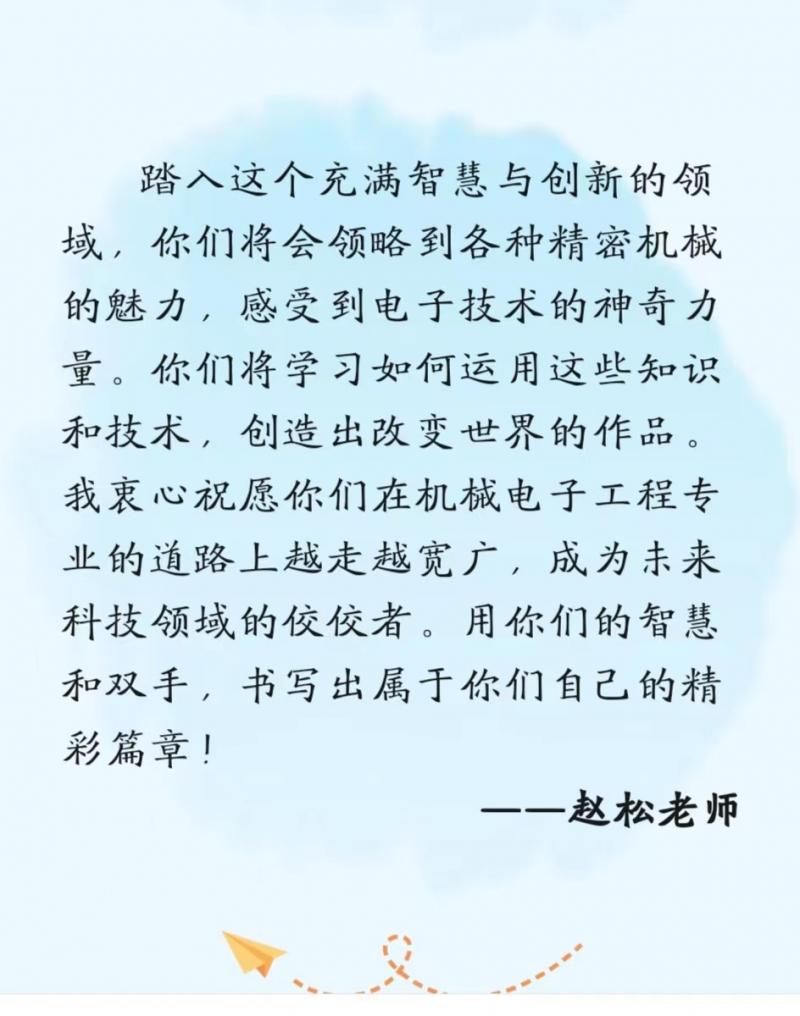 踏入这个充满智慧与创新的领
域，你们将会领略到各种精密机械
的魅力，感受到电子技术的神奇力
量。你们将学习如何运用这些知识
和技术，创造出改变世界的作品。
我衷心祝愿你们在机械电子工程专
业的道路上越走越宽广，成为未来
科技领域的佼佼者。用你们的智慧
和双手，书写出属于你们自己的精
彩篇章！
——赵松老师